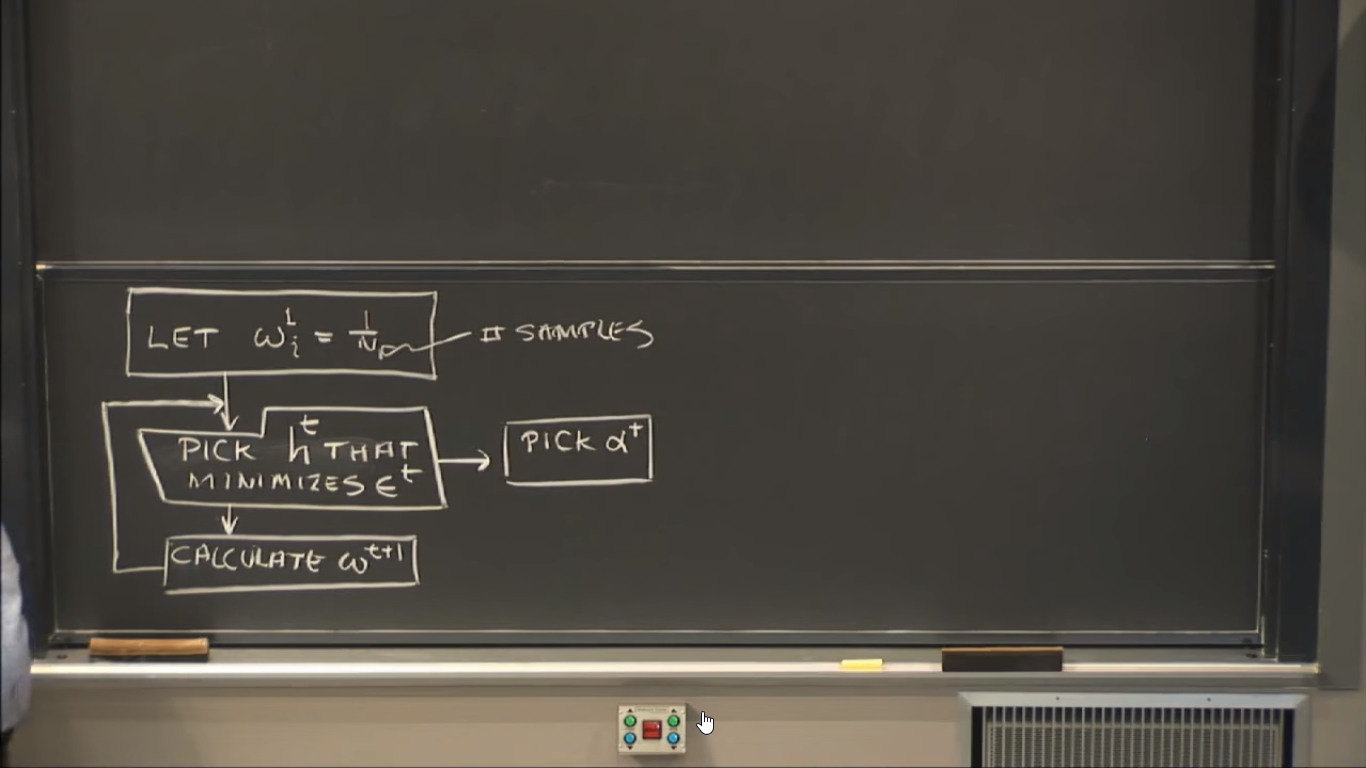 LET ω_i^1 = 1/N
# SAMPLES
PICK h^t THAT
MINIMIZES ε^t
PICK α^t
CALCULATE ω^{t+1}